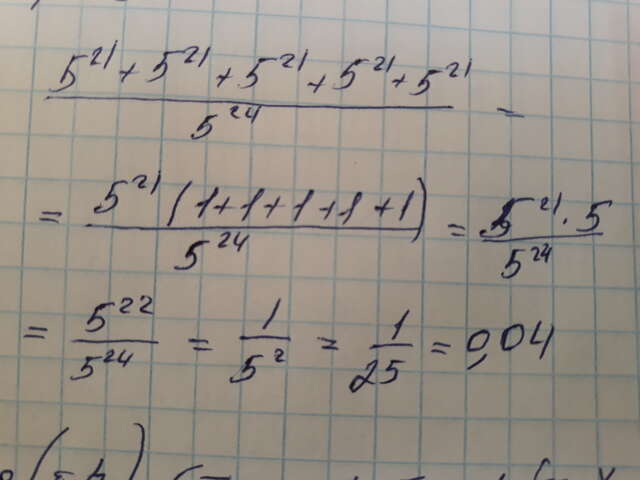 5²¹ + 5²¹ + 5²¹ + 5²¹ + 5²¹ / 5²⁴ =
= 5²¹ (1+1+1+1+1) / 5²⁴ = 5²¹ · 5 / 5²⁴
= 5²² / 5²⁴ = 1 / 5² = 1 / 25 = 0,04